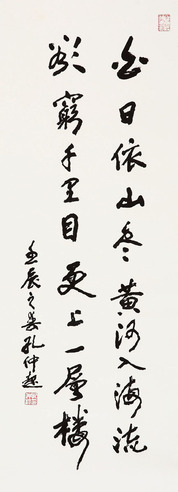 白日依山尽黄河入海流
欲穷千里目更上一层楼
壬辰之春孔仲起